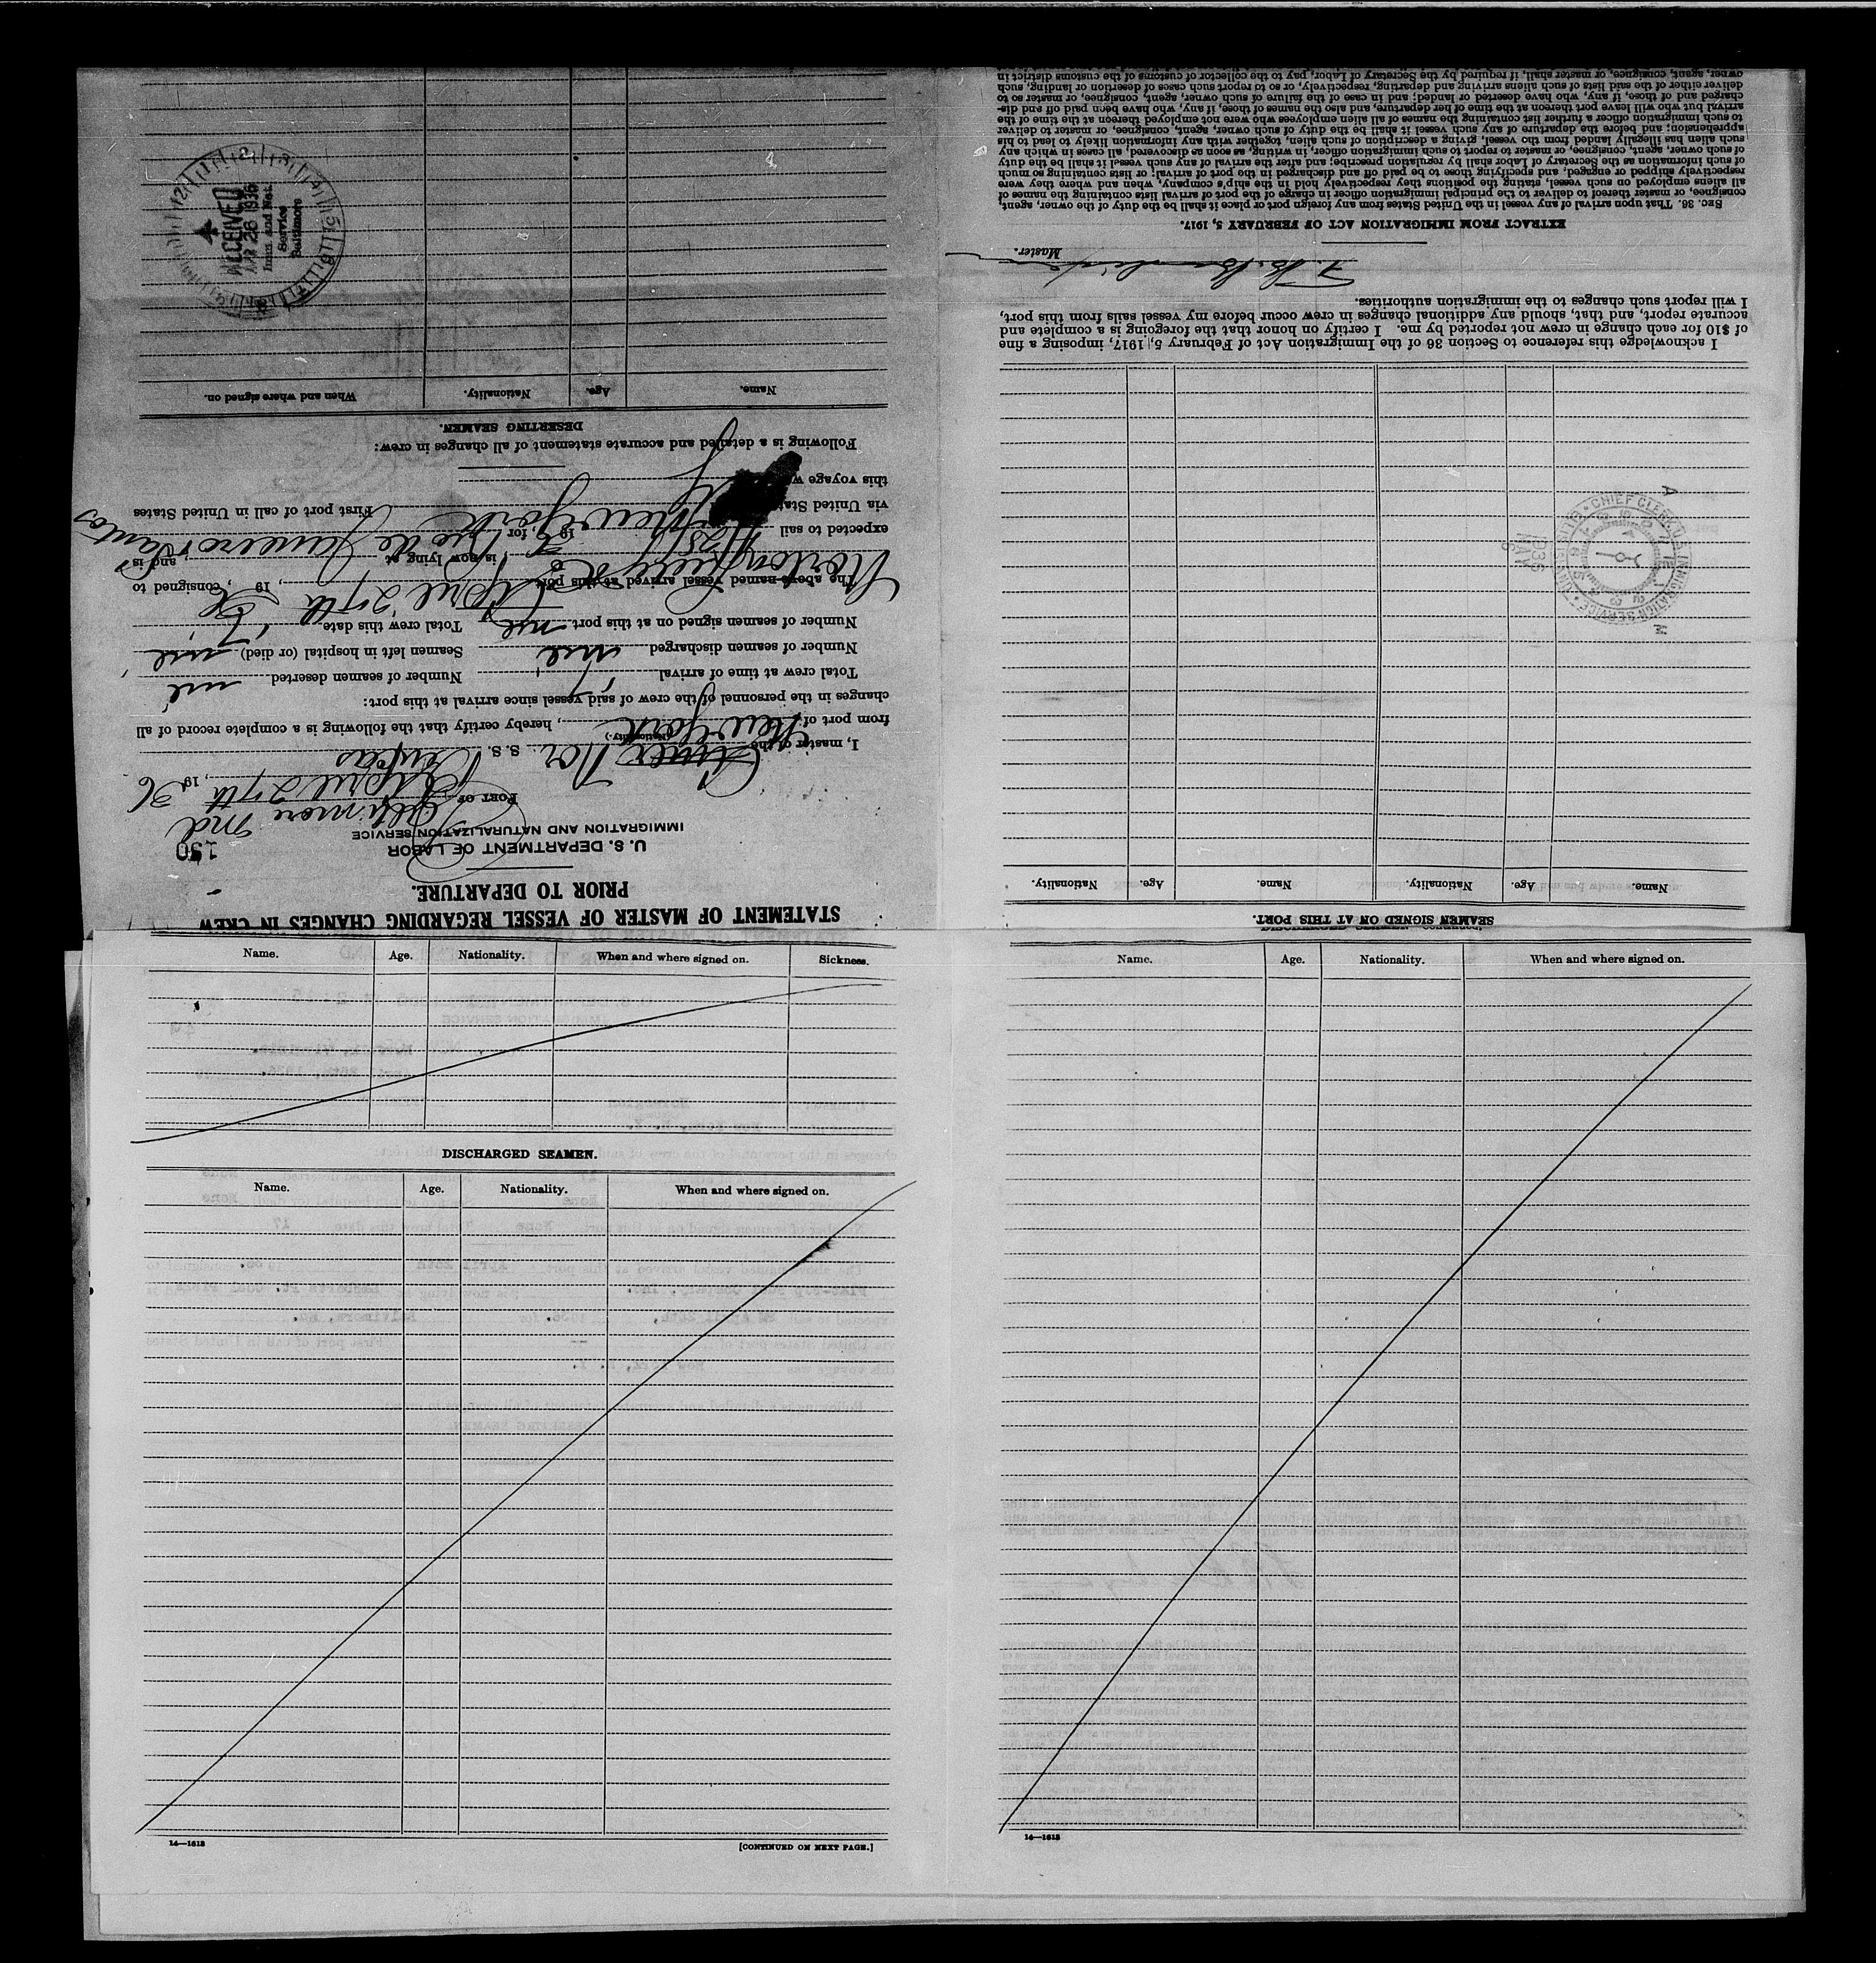 STATEMENT OF MASTER OF VESSEL REGARDING CHANGES IN CREW
PRIOR TO DEPARTURE.
U. S. DEPARTMENT OF LABOR
IMMIGRATION AND NATURALIZATION SERVICE
150
PORT OF Baltimore Md
April 27th, 19 36
I, master of the Nor. S. S.
(Nationality.)
from port of New York, hereby certify that the following is a complete record of all
changes in the personnel of the crew of said vessel since arrival at this port:
Total crew at time of arrival Number of seamen deserted nil
Number of seamen discharged nil Seamen left in hospital (or died) nil
Number of seamen signed on at this port nil Total crew this date
The above-named vessel arrived at this port April 27th, 19 36, consigned to
Norton Lilly & Co, is now lying at, and is
expected to sail 19 , for Rio de Janeiro Santos
via United States New York First port of call in United States
this voyage
Following is a detailed and accurate statement of all changes in crew:
DESERTING SEAMEN.
Name. Age. Nationality. When and where signed on.
RECEIVED
APR 26 1936
Imm and Nat.
Service
Baltimore
SEAMEN SIGNED ON AT THIS PORT.
Name. Age. Nationality. Name. Age. Nationality.
CHIEF CLERK U.S. IMMIGRATION SERVICE
I acknowledge this reference to Section 36 of the Immigration Act of February 5, 1917, imposing a fine
of $10 for each change in crew not reported by me. I certify on honor that the foregoing is a complete and
accurate report, and that, should any additional changes in crew occur before my vessel sails from this port,
I will report such changes to the immigration authorities.
Master.
EXTRACT FROM IMMIGRATION ACT OF FEBRUARY 5, 1917.
SEC. 36. That upon arrival of any vessel in the United States from any foreign port or place it shall be the duty of the owner, agent,
consignee, or master thereof to deliver to the principal immigration officer in charge of the port of arrival lists containing the names of
all aliens employed on such vessel, stating the positions they respectively hold in the ship's company, when and where they were
respectively shipped or engaged, and specifying those to be paid off and discharged in the port of arrival; or lists containing so much
of such information as the Secretary of Labor shall by regulation prescribe; and after the arrival of any such vessel it shall be the duty
of such owner, agent, consignee, or master to report to such immigration officer, in writing, as soon as discovered, all cases in which any
such alien has illegally landed from the vessel, giving a description of such alien, together with any information likely to lead to his
apprehension; and before the departure of any such vessel it shall be the duty of such owner, agent, consignee, or master to deliver
to such immigration officer a further list containing the names of all alien employees who were not employed thereon at the time of the
arrival but who will leave port thereon at the time of her departure, and also the names of those, if any, who have been paid off and dis-
charged and of those, if any, who have deserted or landed; and in case of the failure of such owner, agent, consignee, or master so to
deliver either of the said lists of such aliens arriving and departing, respectively, or so to report such cases of desertion or landing, such
owner, agent, consignee, or master shall, if required by the Secretary of Labor, pay to the collector of customs of the customs district in
Name. Age. Nationality. When and where signed on. Sickness.
DISCHARGED SEAMEN.
Name. Age. Nationality. When and where signed on.
14—1613
[CONTINUED ON NEXT PAGE.]
Name. Age. Nationality. When and where signed on.
14—1613